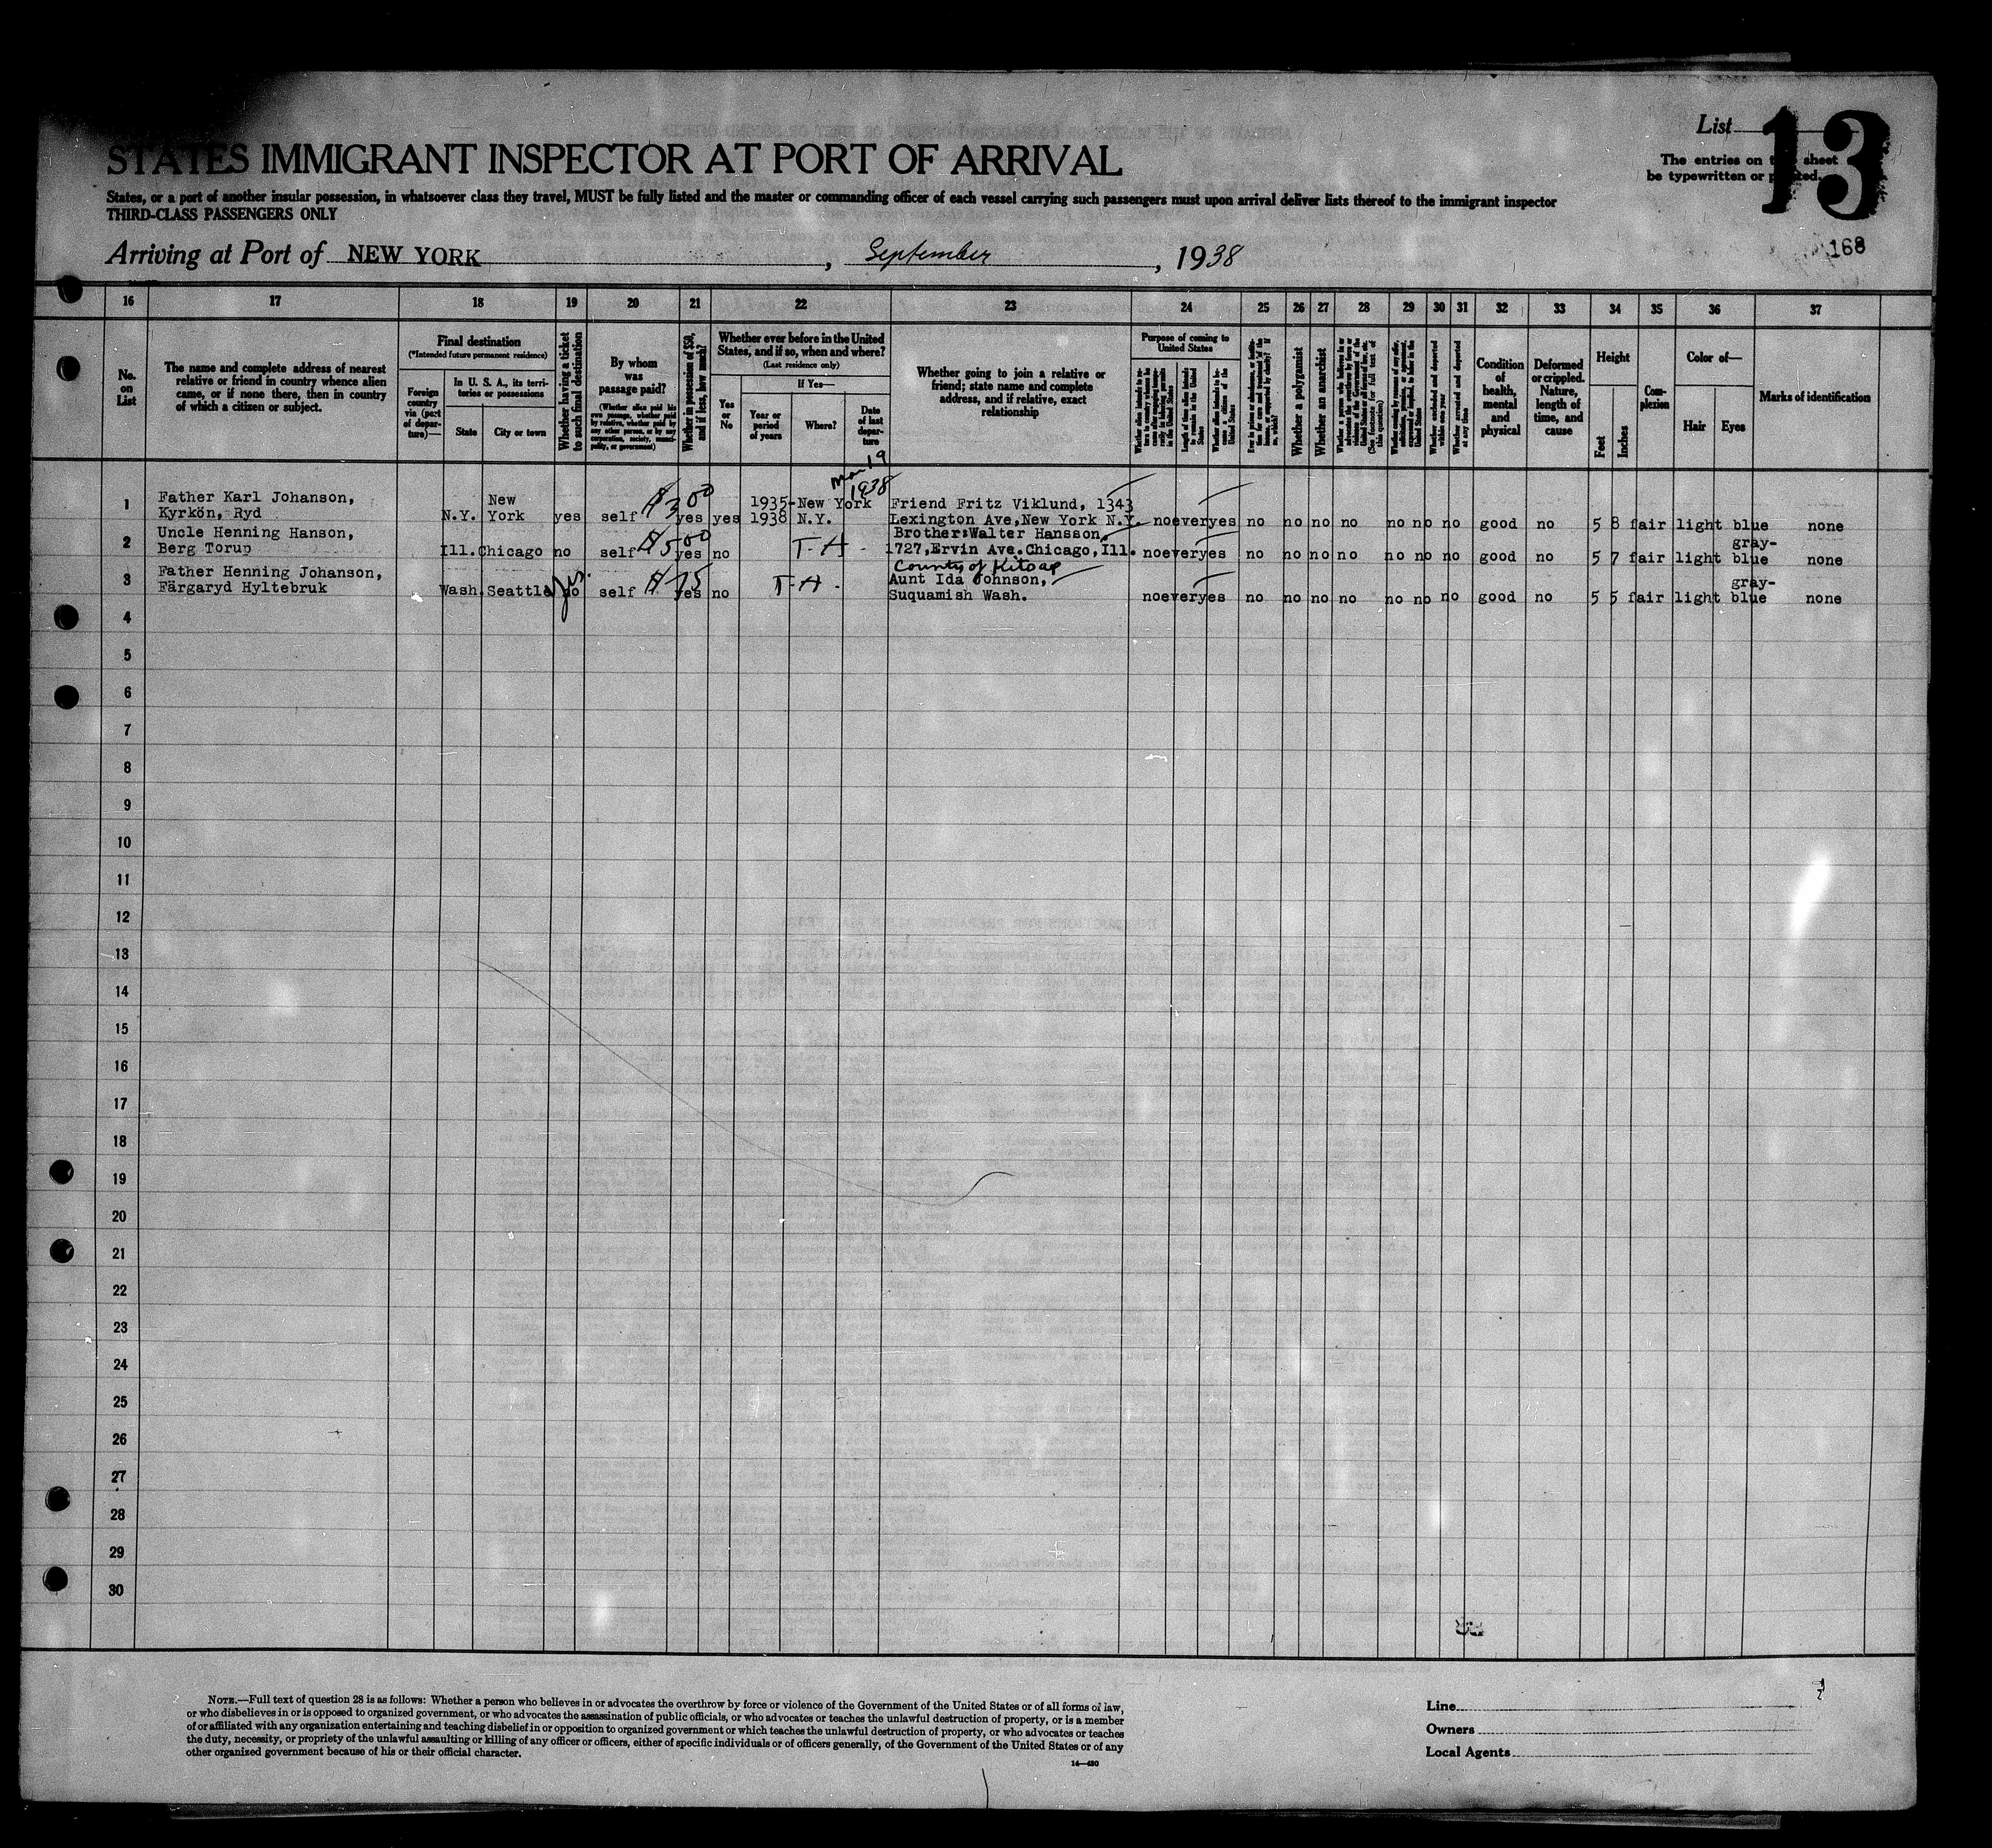 List 13
STATES IMMIGRANT INSPECTOR AT PORT OF ARRIVAL
The entries on sheet
be typewritten or
States, or a part of another insular possession, in whatsoever class they travel, MUST be fully listed and the master or commanding officer of each vessel carrying such passengers must upon arrival deliver lists thereof to the immigrant inspector
THIRD-CLASS PASSENGERS ONLY
Arriving at Port of NEW YORK, September, 1938
168
16 17 18 19 20 21 22 23 24 25 26 27 28 29 30 31 32 33 34 35 36 37
No. on List
The name and complete address of nearest
relative or friend in country whence alien
came, or if none there, then in country
of which a citizen or subject.
Final destination
(*Intended future permanent residence)
Foreign country via (port of departure)—
In U. S. A., its territories or possessions
State
City or town
Whether having a ticket to such final destination
By whom was passage paid?
(Whether alien paid his own passage, whether paid by relative, whether paid by any other person, or by any corporation, society, municipality, or government)
Whether in possession of $50, and if less, how much?
Whether ever before in the United
States, and if so, when and where?
(Last residence only)
If Yes—
Yes or No
Year or period of years
Where?
Date of last departure
Whether going to join a relative or
friend; state name and complete
address, and if relative, exact
relationship
Purpose of coming to United States
Whether a polygamist
Whether an anarchist
Condition of health, mental and physical
Deformed or crippled. Nature, length of time, and cause
Height
Feet
Inches
Complexion
Color of—
Hair
Eyes
Marks of identification
Mar 19
1938
1 Father Karl Johanson, New $300 1935-New York Friend Fritz Viklund, 1343
Kyrkön, Ryd N.Y. York yes self yes yes 1938 N.Y. Lexington Ave, New York N.Y. no ever yes no no no no no no no good no 5 8 fair light blue none
2 Uncle Henning Hanson, $500 Brother: Walter Hansson, gray-
Berg Torup Ill. Chicago no self yes no T-H- 1727, Ervin Ave. Chicago, Ill. no ever yes no no no no no no no good no 5 7 fair light blue none
County of Kitsap
3 Father Henning Johanson, yes. $75 Aunt Ida Johnson, gray-
Färgaryd Hyltebruk Wash. Seattle no self yes no T-H- Suquamish Wash. no ever yes no no no no no no no good no 5 5 fair light blue none
4
5
6
7
8
9
10
11
12
13
14
15
16
17
18
19
20
21
22
23
24
25
26
27
28
29
30
NOTE.—Full text of question 28 is as follows: Whether a person who believes in or advocates the overthrow by force or violence of the Government of the United States or of all forms of law,
or who disbelieves in or is opposed to organized government, or who advocates the assassination of public officials, or who advocates or teaches the unlawful destruction of property, or is a member
of or affiliated with any organization entertaining and teaching disbelief in or opposition to organized government or which teaches the unlawful destruction of property, or who advocates or teaches
the duty, necessity, or propriety of the unlawful assaulting or killing of any officer or officers, either of specific individuals or of officers generally, of the Government of the United States or of any
other organized government because of his or their official character.
14—480
Line
Owners
Local Agents